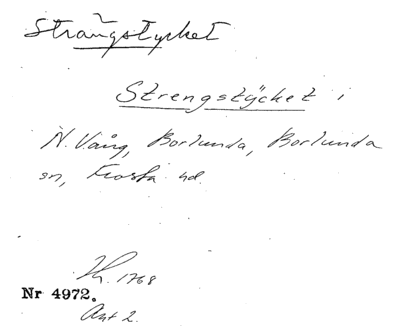 Strängstycket
Strengstÿcket i
N. Vång, Borlunda, Borlunda
sn, Frosta hd.
1768
Nr 4972.
Akt 2.